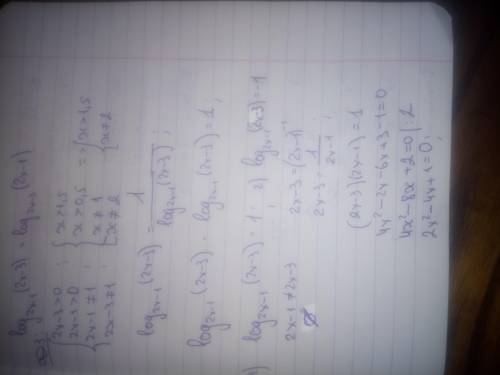 log₂ₓ₋₁(2x-3) = log₂ₓ₋₃(2x-1)
{2x-3>0 ; {x>1,5
2x-1>0 ; x>0,5
2x-1≠1 ; x≠1
2x-3≠1 ; x≠2
= {x>1,5
x≠2
log₂ₓ₋₁(2x-3) = 1/log₂ₓ₋₁(2x-3) ;
log₂ₓ₋₁(2x-3) · log₂ₓ₋₁(2x-3) = 1 ;
1) log₂ₓ₋₁(2x-3) = 1 ; 2) log₂ₓ₋₁(2x-3) = -1
2x-1≠2x-3
∅
2x-3 = (2x-1)⁻¹
2x-3 = 1/(2x-1) ;
(2x-3)(2x-1) = 1
4x²-2x-6x+3-1=0
4x²-8x+2=0 | :2
2x²-4x+1=0;